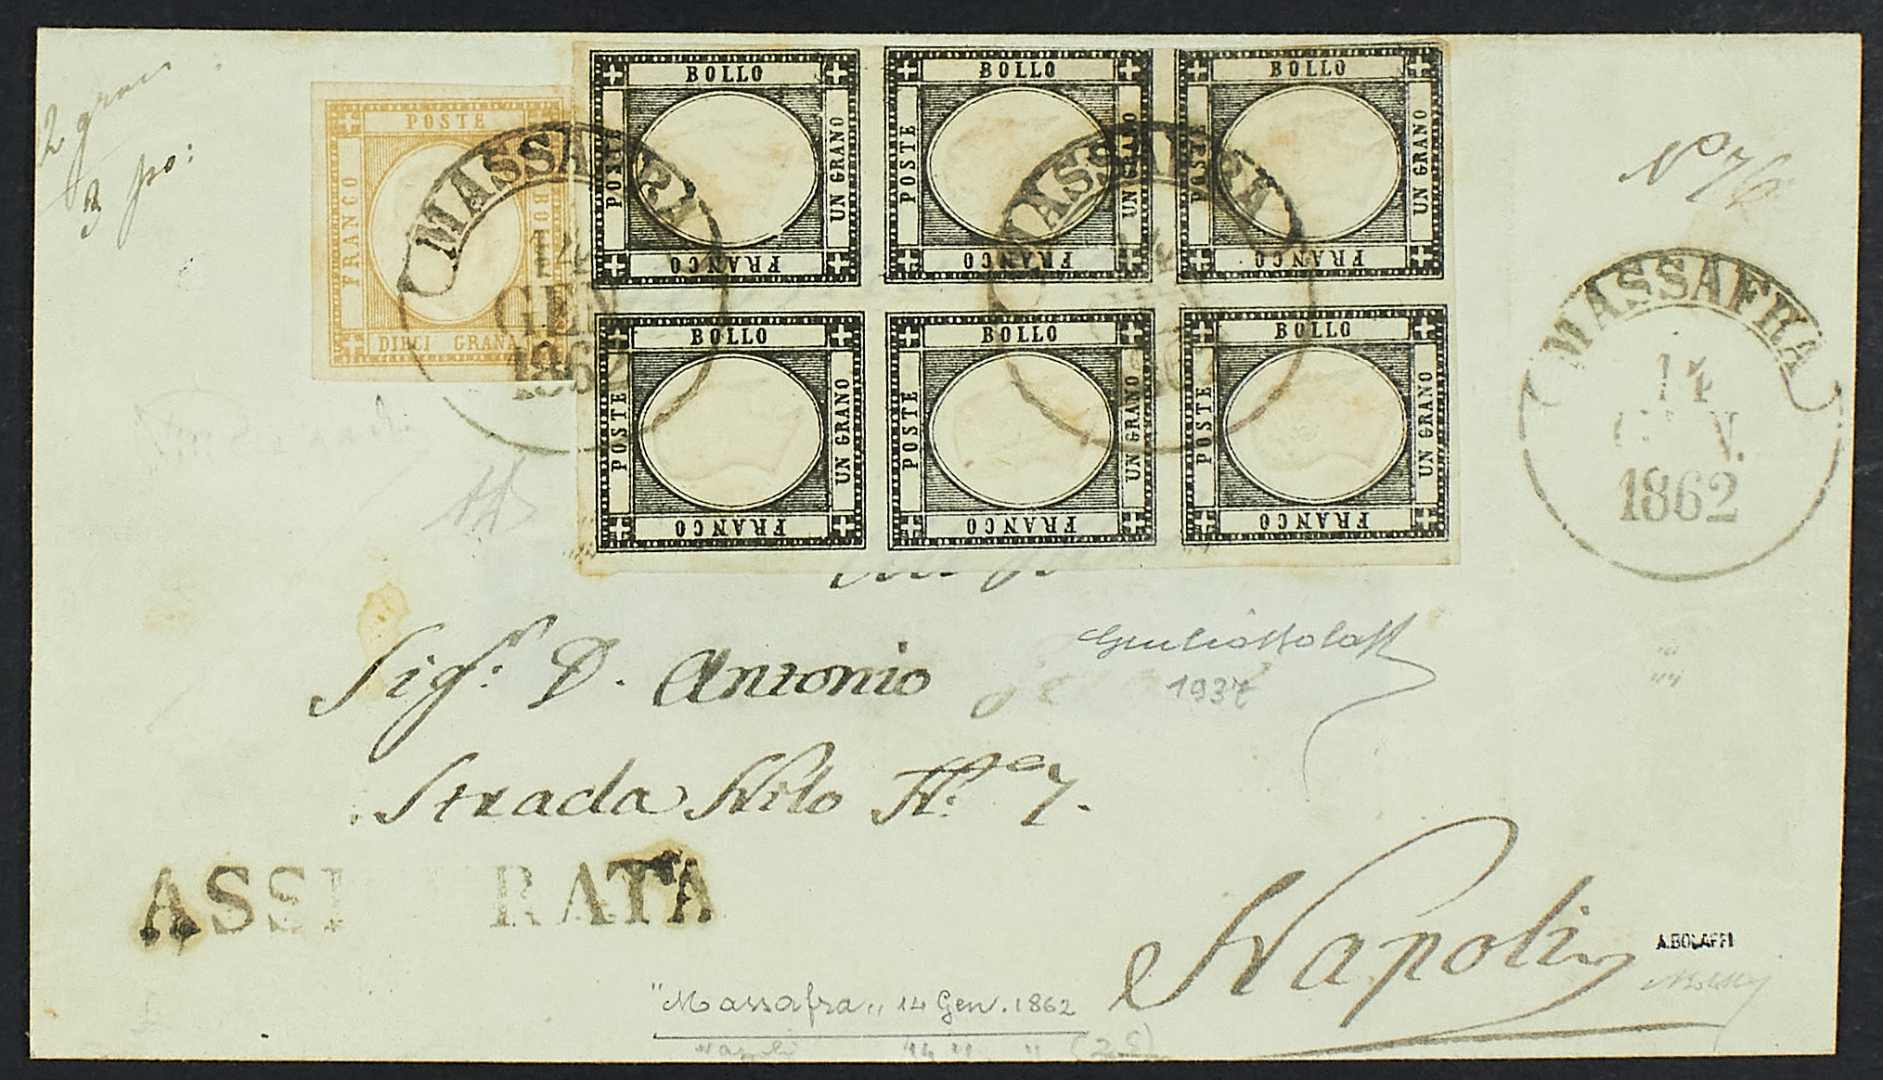 2 grana
3 po:
POSTE
FRANCO
BOLLO
DIECI GRANA
BOLLO
POSTE
UN GRANO
FRANCO
BOLLO
POSTE
UN GRANO
FRANCO
BOLLO
POSTE
UN GRANO
FRANCO
BOLLO
POSTE
UN GRANO
FRANCO
BOLLO
POSTE
UN GRANO
FRANCO
BOLLO
POSTE
UN GRANO
FRANCO
MASSAFRA
14
GEN
1862
MASSAFRA
14
GEN
1862
No 76
MASSAFRA
14
GEN.
1862
Sigr. D. Antonio
Giulio Bolaffi
1937
Strada Nilo No. 7.
ASSICURATA
Napoli
A.BOLAFFI
"Massafra" 14 Gen. 1862
Napoli 14 " "